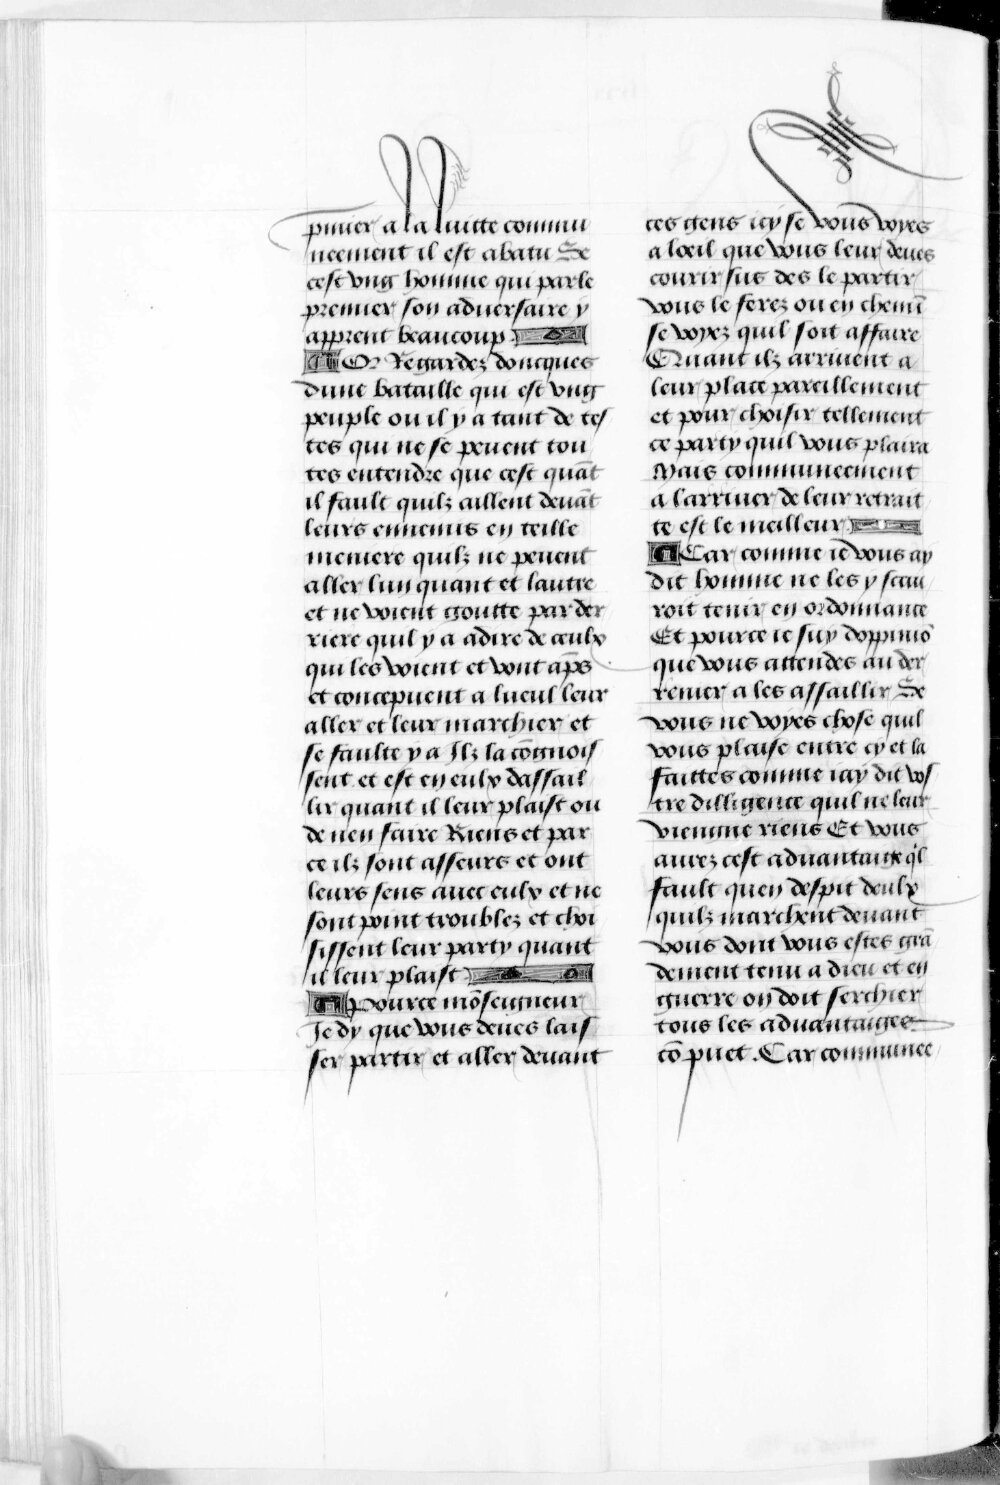 pmier a la luitte commu
neement il est abatu Se
cest vng homme qui parle
premier son aduersaire y
apprent beaucoup
Or Regardez doncques
dune bataille qui est vng
peuple ou il y a tant de tes
tes qui ne se peuent tou
tes entendre que cest quāt
il fault quilz aillent deuāt
leurs ennemis en teille
meniere quilz ne peuent
aller lun quant et lautre
et ne voient goutte par der
riere quil y a adire de ceulx
qui les voient et vont aps̄
et concepuent a lueul leur
aller et leur marchier et
se faulte y a Ilz la cōgnois
sent et est en eulx dassail
lir quant il leur plaist ou
de nen faire Riens et par
ce ilz sont asseurs et ont
leurs sens auec eulx et ne
sont point troublez et choi
sissent leur party quant
il leur plaist
Pource mōseigneur
Je dy que vous deues lais
ser partir et aller deuant
ces gens icy se vous voyes
a lœil que vous leur deues
courir sus des le partir
vous le ferez ou en chemī
se voyez quil soit affaire
Quant ilz arriuent a
leur place pareillement
et pour choisir tellement
ce party quil vous plaira
Mais communeement
a larriuer de leur retrait
te est le meilleur
Car comme ie vous ay
dit homme ne les y scau
roit tenir en ordonnance
Et pource ie suy doppiniō
que vous attendes au der
renier a les assaillir Se
vous ne voyes chose quil
vous plaise entre cy et la
faittes comme iay dit vos
tre dilligence quil ne leur
viengne riens Et vous
aurez cest aduantaige q̄l
fault quen despit deulx
quilz marchent deuant
vous dont vous estes grā
dement tenu a dieu et en
guerre on doit serchier
tous les aduantaiges
cō puet . Car communee